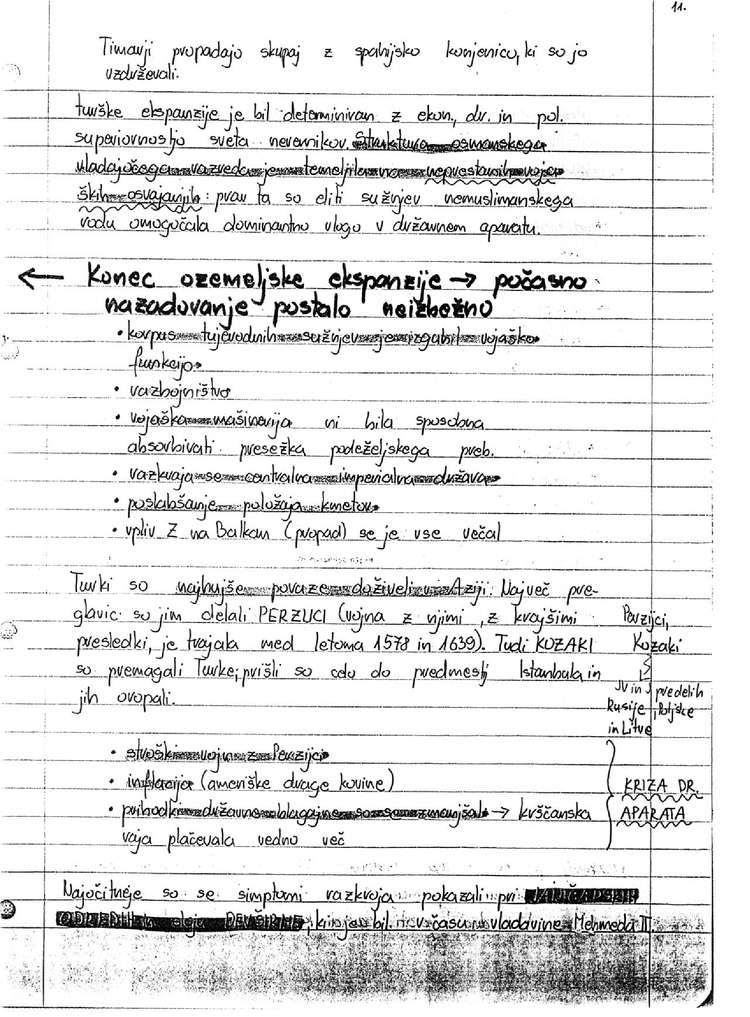 11.
Timarji propadajo skupaj z spahijsko konjenico, ki so jo
vzdrževali.
turške ekspanzije je bil determiniran z ekon., dr. in pol.
superiornostjo sveta nevernikov. Struktura osmanskega
vladajočega razreda je temeljila na neprestanih voja-
ških osvajanjih: prav ta so eliti sužnjev nemuslimanskega
rodu omogočala dominantno vlogo v državnem aparatu.
← Konec ozemeljske ekspanzije → počasno
nazadovanje postalo neizbežno
• korpus tujerodnih sužnjev je izgubil vojaško
funkcijo
• razbojništvo
• vojaška mašinerija ni bila sposobna
absorbirati presežka podeželskega preb.
• razkraja se centralna imperialna država
• poslabšanje položaja kmetov
• vpliv Z na Balkan (propad) se je vse večal
Turki so najhujše poraze doživeli v Aziji. Največ pre-
glavic so jim delali PERZIJCI (vojna z njimi, z krajšimi
presledki, je trajala med letoma 1578 in 1639). Tudi KOZAKI
so premagali Turke; prišli so celo do predmestij Istanbula in
jih oropali.
Perzijci,
Kozaki
JV in predelih
Rusije, Poljske
in Litve
• stroški vojn z Perzijci
• inflacija (ameriške drage kovine)
• prihodki državne blagajne so se zmanjšali → krščanska
raja plačevala vedno več
KRIZA DR.
APARATA
Najočitneje so se simptomi razkroja pokazali pri JANIČARSKIH
ODREDIH DEVŠIRME, ki je bil v času vladavine Mehmeda II.